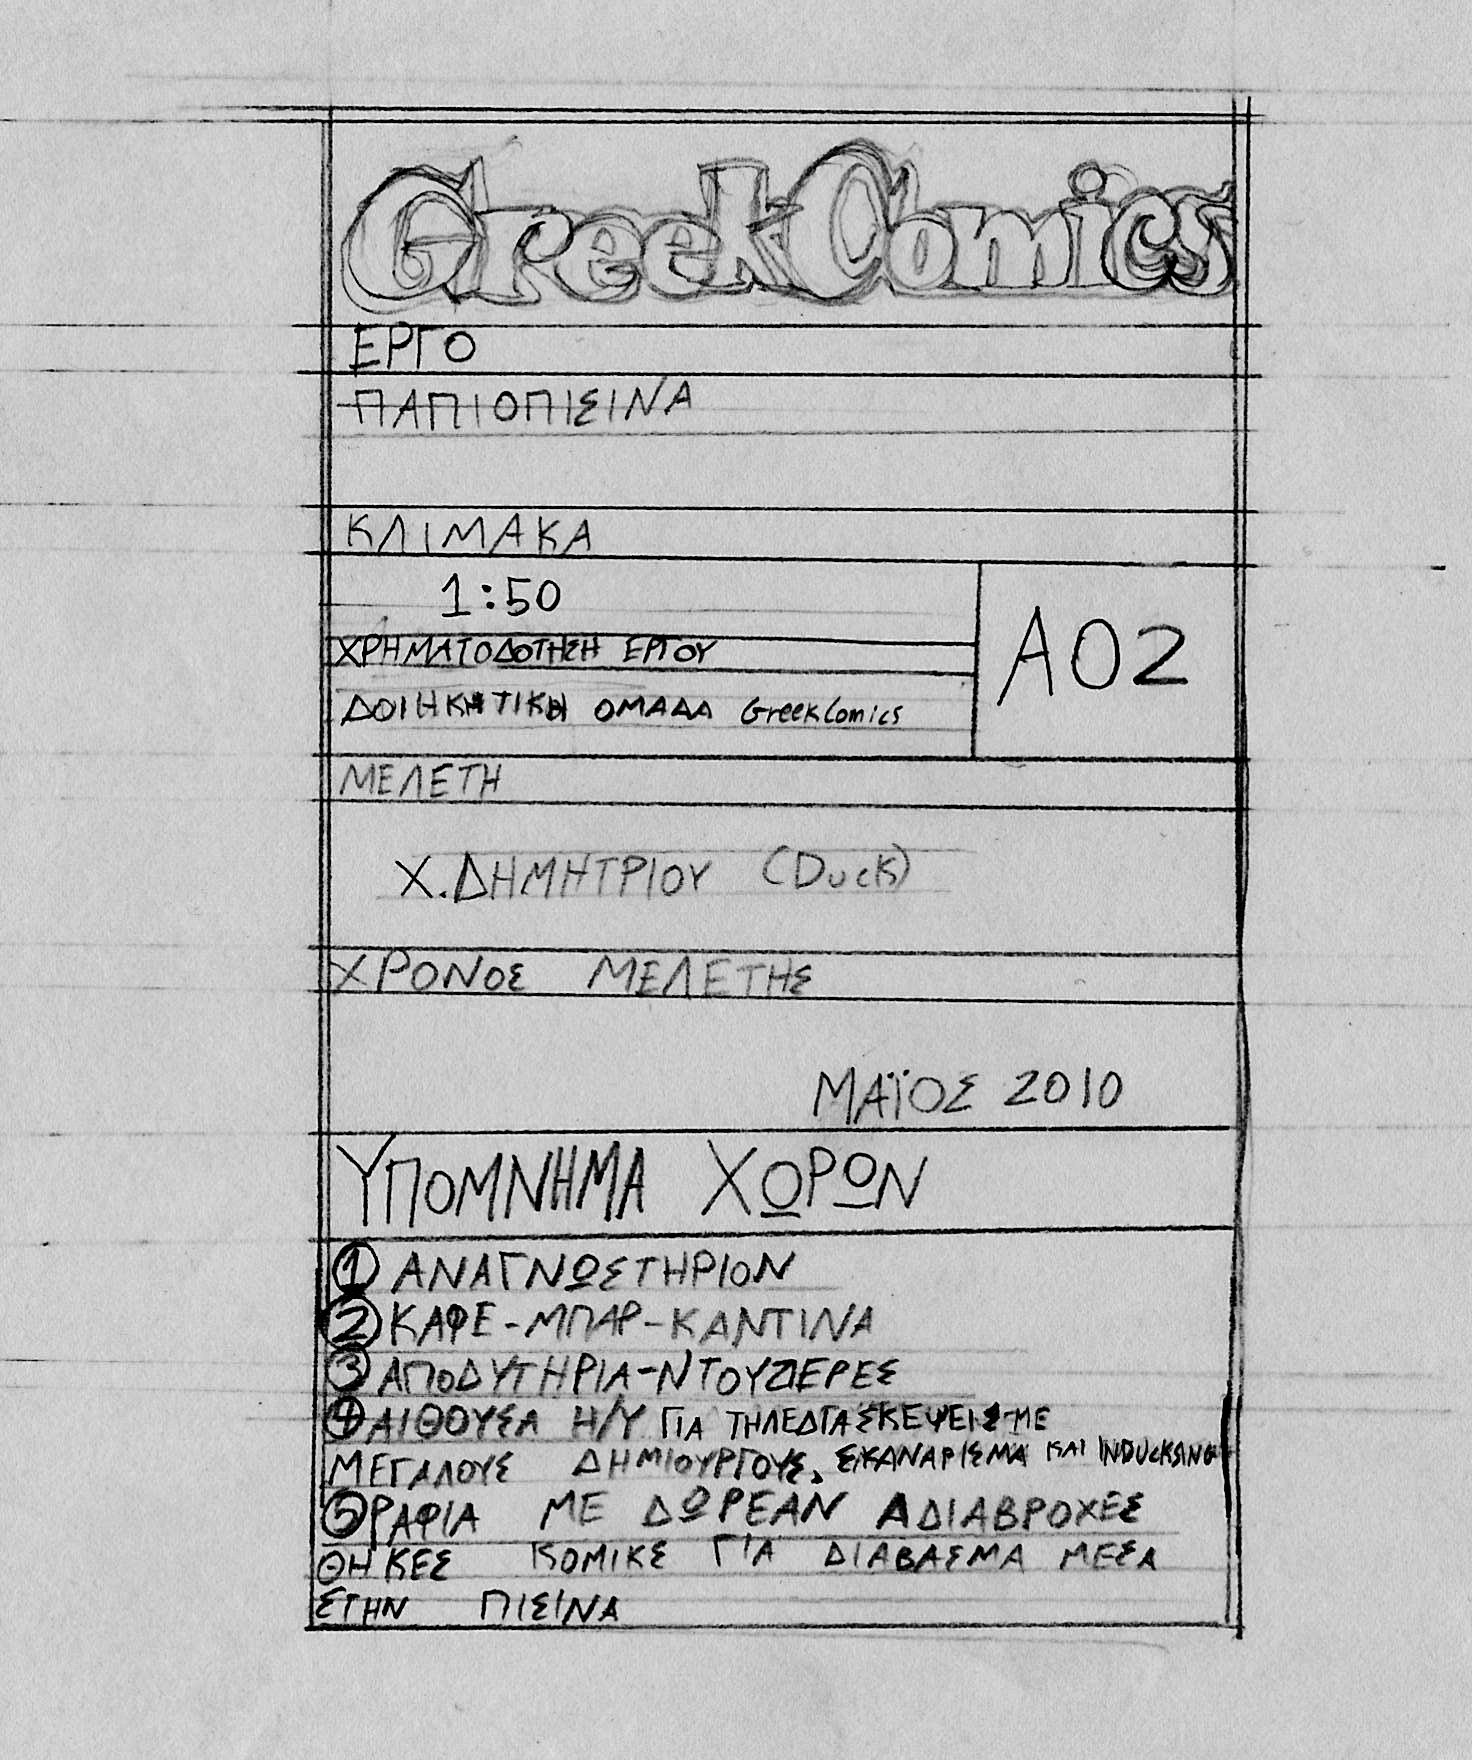 GreekComics
ΕΡΓΟ
ΠΑΠΙΟΠΙΣΙΝΑ
ΚΛΙΜΑΚΑ
1:50
Α02
ΧΡΗΜΑΤΟΔΟΤΗΣΗ ΕΡΓΟΥ
ΔΟΙΗΚΗΤΙΚΗ ΟΜΑΔΑ GreekComics
ΜΕΛΕΤΗ
Χ.ΔΗΜΗΤΡΙΟΥ (Duck)
ΧΡΟΝΟΣ ΜΕΛΕΤΗΣ
ΜΑΪΟΣ 2010
ΥΠΟΜΝΗΜΑ ΧΩΡΩΝ
1 ΑΝΑΓΝΩΣΤΗΡΙΟΝ
2 ΚΑΦΕ-ΜΠΑΡ-ΚΑΝΤΙΝΑ
3 ΑΠΟΔΥΤΗΡΙΑ-ΝΤΟΥΖΙΕΡΕΣ
4 ΑΙΘΟΥΣΑ Η/Υ ΓΙΑ ΤΗΛΕΔΙΑΣΚΕΨΕΙΣ ΜΕ
ΜΕΓΑΛΟΥΣ ΔΗΜΙΟΥΡΓΟΥΣ, ΣΚΑΝΑΡΙΣΜΑ ΚΑΙ INDUCKSING
5 ΡΑΦΙΑ ΜΕ ΔΩΡΕΑΝ ΑΔΙΑΒΡΟΧΕΣ
ΘΗΚΕΣ ΚΟΜΙΚΣ ΓΙΑ ΔΙΑΒΑΣΜΑ ΜΕΣΑ
ΣΤΗΝ ΠΙΣΙΝΑ